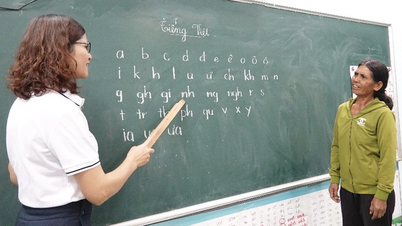 Tiếng Việt
a b c d đ e ê o ô ơ
i k h l u ư ch kh m n
g gh gi nh ng ngh r s
t tr th ph qu v x y
ia ưa